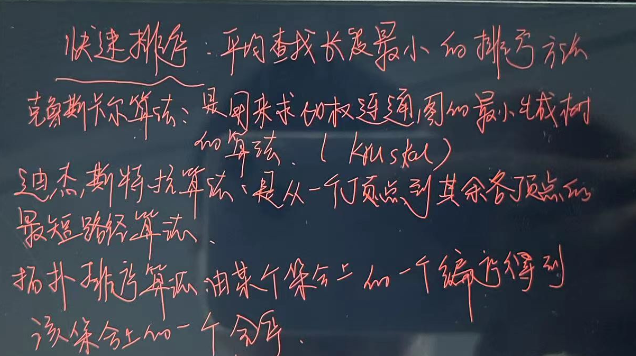 快速排序：平均查找长度最小的排序方法
克鲁斯卡尔算法：是用来求加权连通图的最小生成树
的算法．(Kruskal)
迪杰斯特拉算法：是从一个顶点到其余各顶点的
最短路径算法．
拓扑排序算法 由某个集合上的一个偏序得到
该集合上的一个全序．